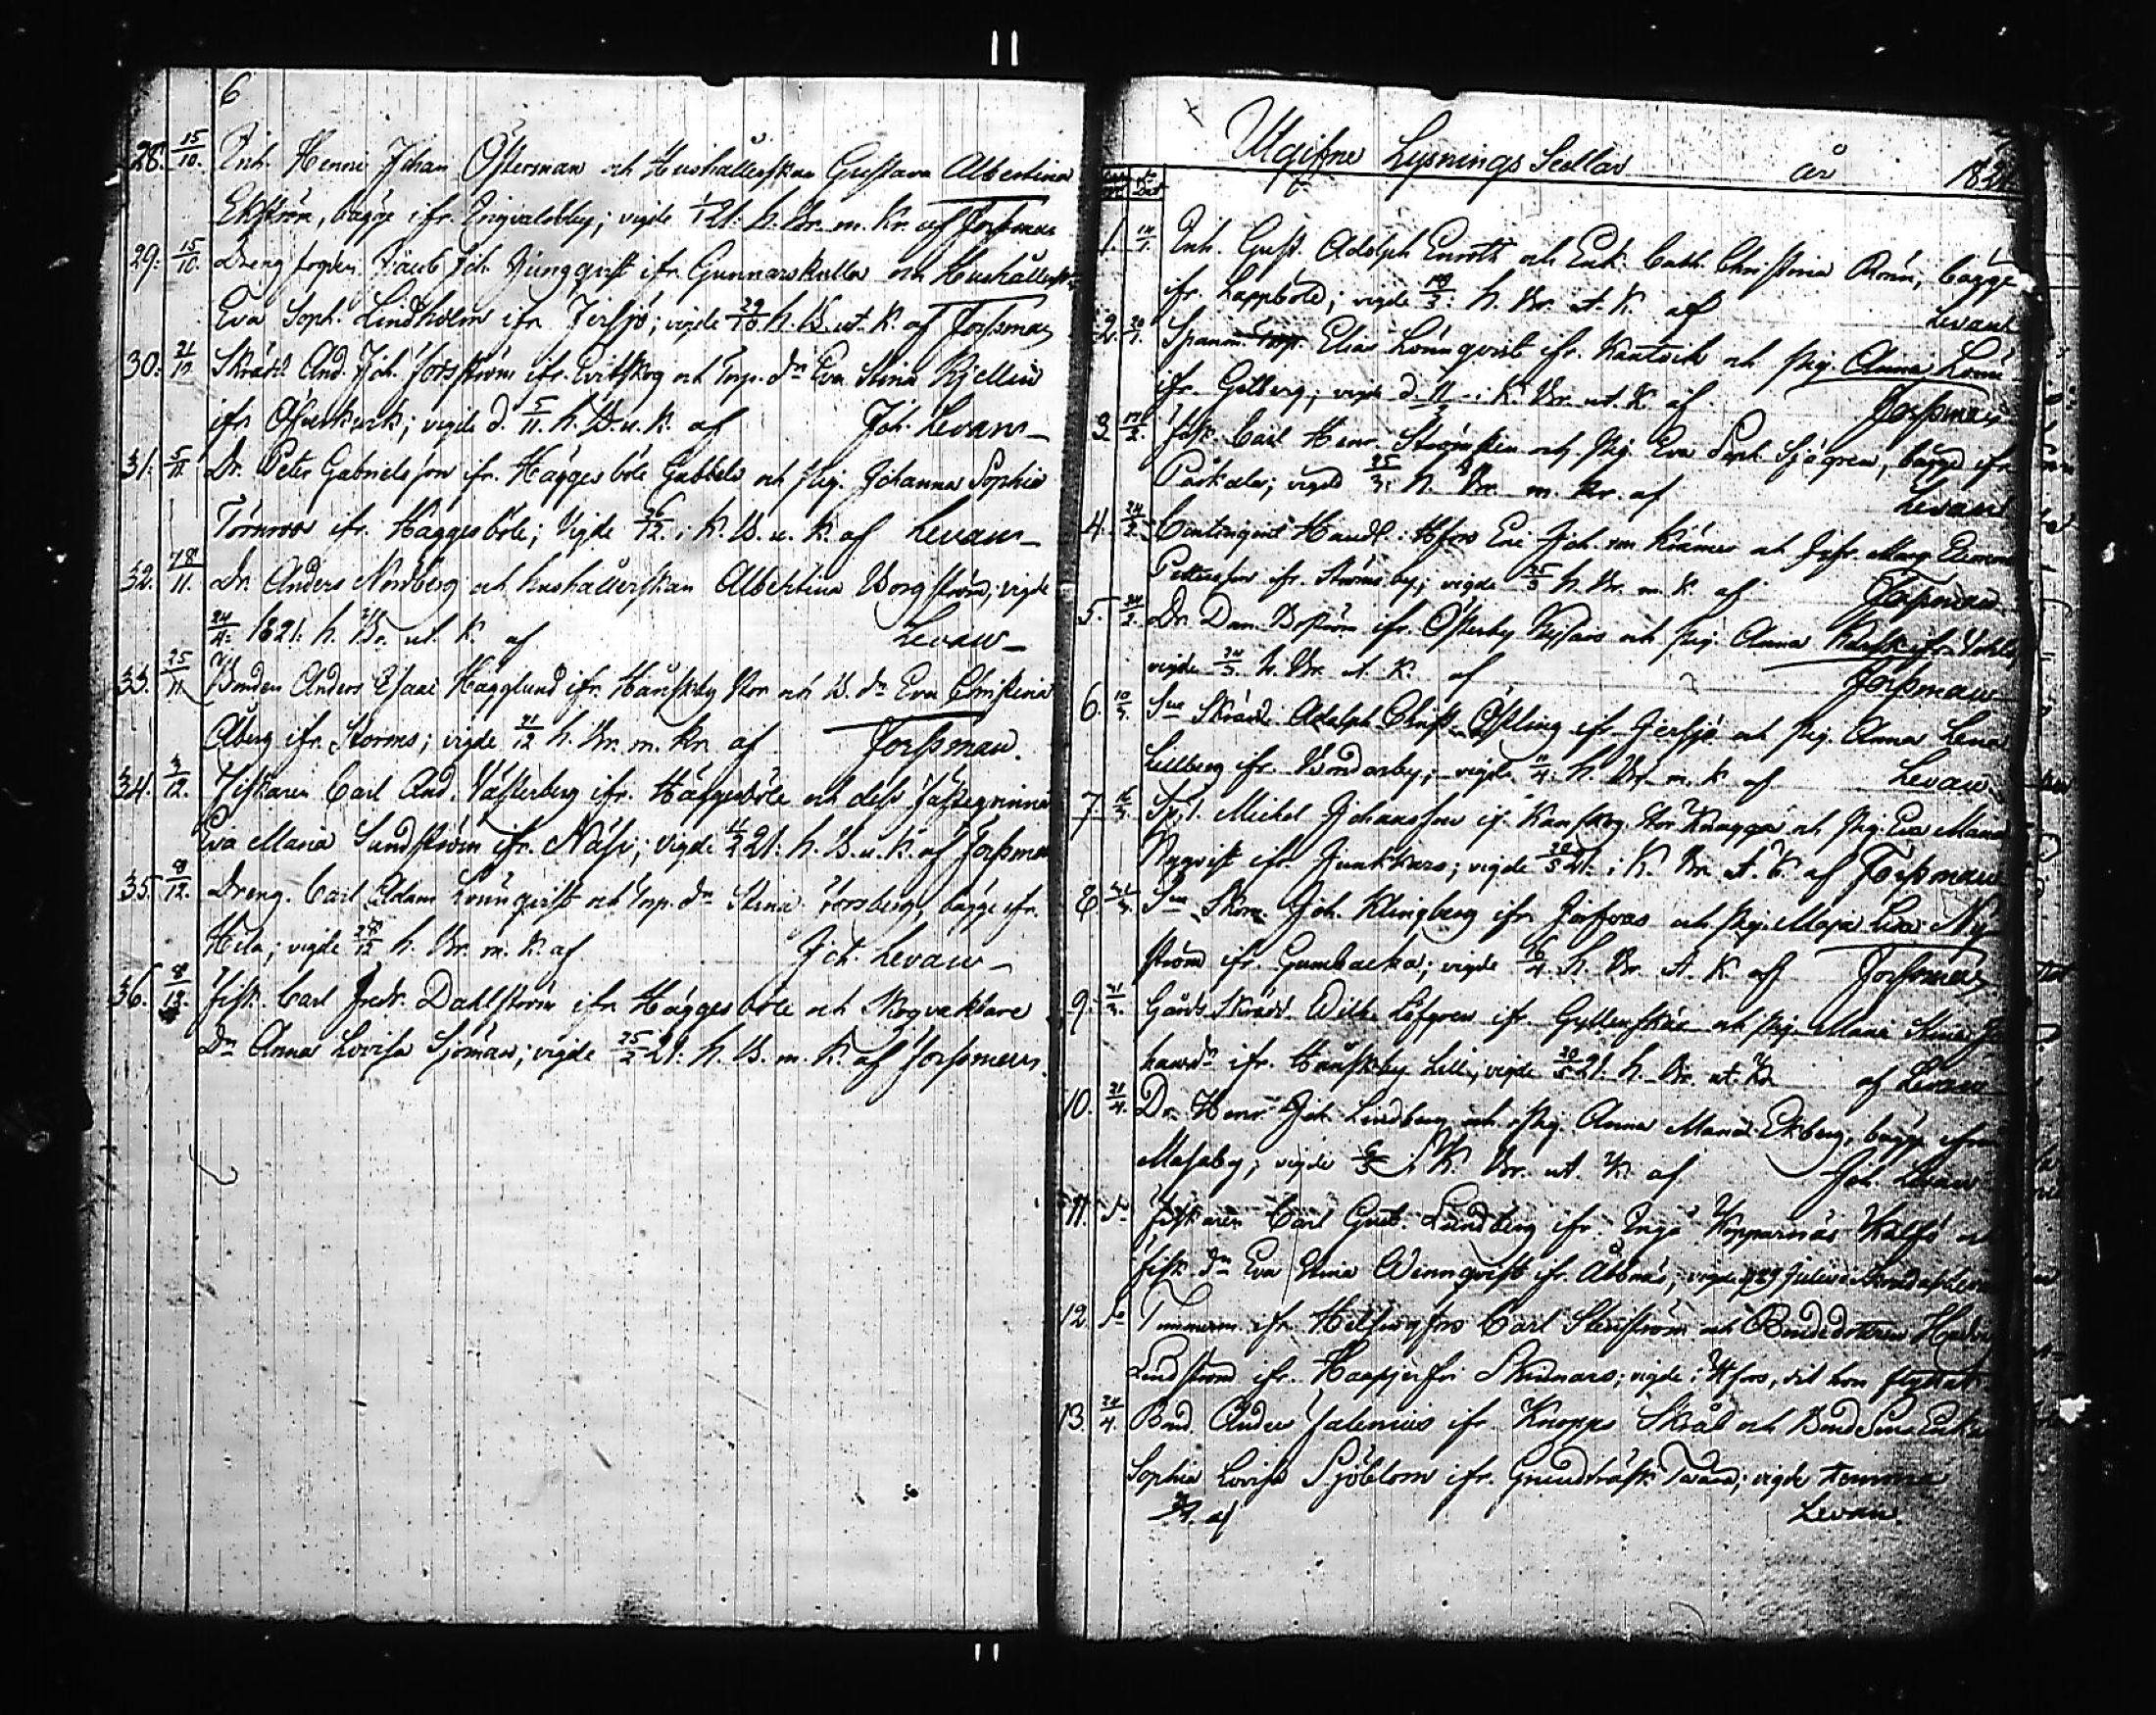 6
28. 15/10. Enk. Henric Johan Österman och Hushållerskan Gustava Albertina
Ekström, bägge ifr. Engvaldsby; vigde 1/1 21: h. Br. m. Kr. af Forssman
29: 15/10. Drengfogden Jacob Joh. Jungqvist ifr. Gunnarskulla och Hushållersk:
Eva Soph. Lindholm ifr. Jerfsjö; vigde 29/10 h. B. ut. K. af Forssman
30: 21/10 Skrädd. And. Joh. Forsström ifr. Evitskog och Torp. dr Eva Stina Kjellin
ifr. Öfverkurk; vigde d. 5/11. h. B. u. K. af Joh. Levan
31: 5/11 Dr. Peter Gabrielsson ifr. Häggesböle Gabbels och Pig. Johanna Sophia
Törnroos ifr. Häggesböle; vigde 26/12. i K. B. u. K. af Levan
32. 18/11. Dr. Anders Nordberg och hushållerskan Albertina Borgström; vigde
24/4: 1821: h. Br. ut. K. af Levan
33. 25/11 Bonden Anders Esaac Hägglund ifr. Hånskby Stor och B. dr Eva Christina
Åberg ifr. Storms; vigde 21/12 h. Br. m. Kr. af Forssman.
34. 3/12. Fiskaren Carl And. Västerberg ifr. Häggesböle och dess Fästeqvinna
Eva Maria Sundström ifr. Näse; vigde 21: h. B. u. K. af Forssman
35. 8/12. Dreng. Carl Adam Lönnqvist och Torp. dr Stina Forsberg, bägge ifr.
Hila; vigde 28/12 h. Br. m. K. af Joh. Levan
36. 8/12. Fisk. Carl Fredr. Dahlström ifr. Häggesböle och Skogvaktare
dr Anna Lovisa Sjöman; vigde 25/2 21: h. B. m. K. af Forssman.
Utgifne Lysnings Sedlar år 1821
1. 14/1. Enk. Gust. Adolph Enroth och Enk. Cath. Christina Norrn, bägge
ifr. Lappböle; vigde h. Br. ut. K. af Levan
2. Spanm. Elias Lönnqvist ifr. Kantvik och Pig. Anna Lov:
ifr. Getberg; vigde d. 11 i K. Br. ut. K. af Forssman
3. Fisk. Carl Henr. Strömsten och Pig. Eva Soph. Sjögren, bägge ifr.
Porkala; vigde 25/3: h. Br. m. Kr. af Levan
4. 24/2. Contingent Handl. i Hfors Eric Joh. von Krämer och Jgfr. Marg.
Pettersson ifr. Strömsby; vigde 25/3 h. Br. m. K. af Forssman
5. 24/2. Dr. Dan. Boström ifr. Österby Nyssars och Pig. Anna ifr.
vigde h. Br. ut. K. af Forssman
6. 10/3. Sn Skrädd. Adolph Christ. Östling ifr. Jerfsjö och Pig. Anna Lena
Lillberg ifr. Bondarby; vigde h. Br. m. K. af Levan
7. Michel Johansson ifr. Kanskog Stor Knagga och Pig. Eva Maria
Nyqvist ifr. Junkkars; vigde 20/5 21: i K. Br. ut. K. af Forssman
8. Sn Skom. Joh. Klingberg ifr. Jorfvas och Pig. Maja Lisa Ny-
ström ifr. Gumbacka; vigde h. Br. ut. K. af Forssman
9. Gårds Skrädd. Wilh. Löfgren ifr. Gyllenskär och Pig. Maria Stina Jo
hansdr ifr. Hånskby Lill; vigde 20/5 21: h. Br. ut. K. af Levan
10. 21/4. Dr. Henr. Joh. Lindberg och Pig. Anna Maria Ekberg, bägge ifrån
Masaby; vigde i K. Br. ut. K. af Joh. Levan
11. do Fiskaren Carl Gust. Lundberg ifr. Ingå Kopparnäs Kalfö och
Fisk. dr Eva Stina Wennqvist ifr. Åbbnäs; vigde d 29 Julii
12. do Timmerm. ifr. Helsingfors Carl Stenström och Bondedottren Hedvig
Lindström ifr. Haapjerfvi Skinnars; vigde i Hfors, dit hon flyttat
13. 24/4. Bond. Anders Salenius ifr. Knopps Skrål och Bonde Enka
Sophia Lovisa Sjöblom ifr. Grundträsk; vigde
af Levan.